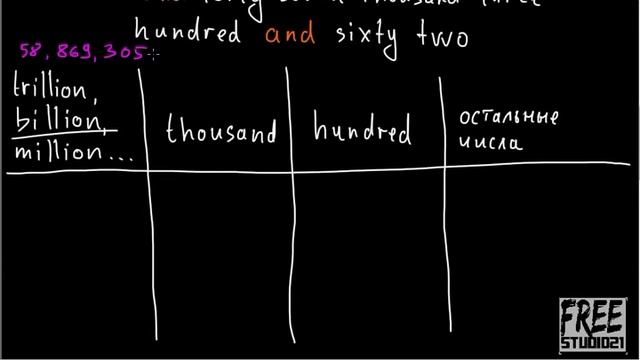 hundred and sixty two
58, 869, 305
trillion,
billion,
million...
thousand
hundred
остальные
числа
FREE
STUDIO21